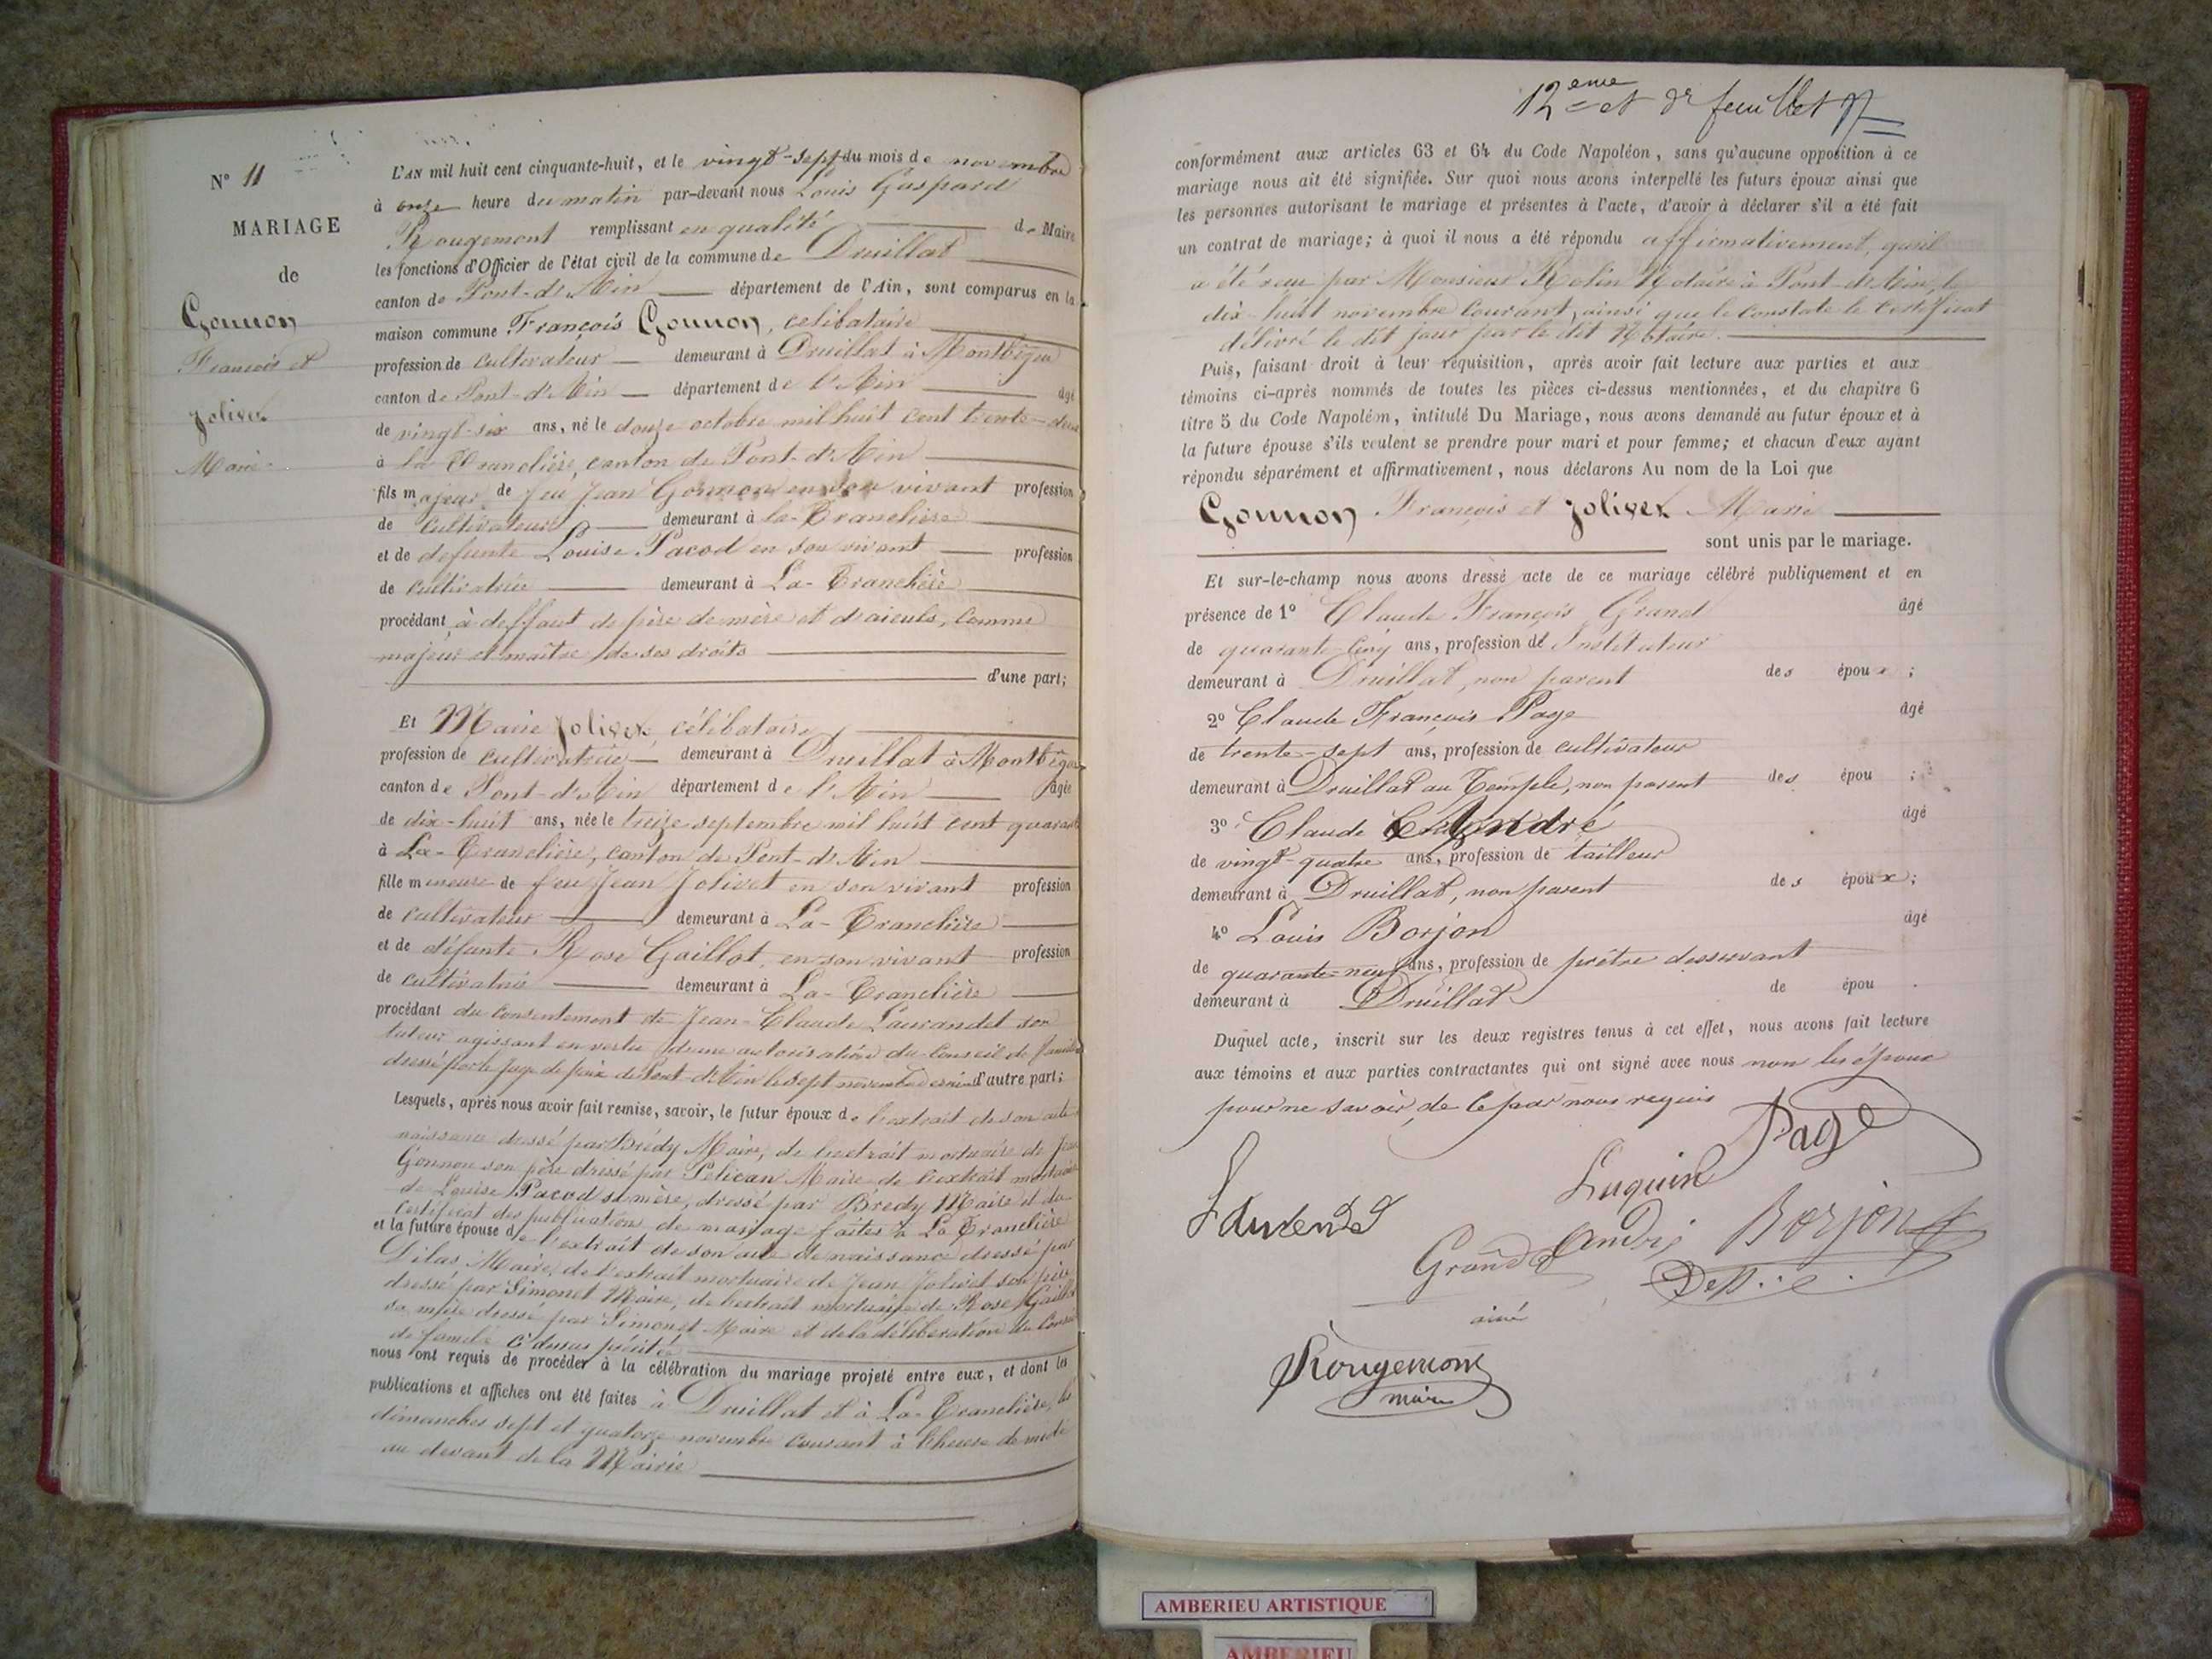 N° 11
MARIAGE
de
Gonnon
François et
Jolivet
Marie
L'AN mil huit cent cinquante-huit, et le vingt-sept du mois de novembre
à onze heure du matin par-devant nous Louis Gaspard
Rougemont remplissant en qualité de Maire
les fonctions d'Officier de l'état civil de la commune de Druillat
canton de Pont-d'Ain département de l'Ain, sont comparus en la
maison commune François Gonnon, célibataire
profession de cultivateur demeurant à Druillat à Montbègue
canton de Pont-d'Ain département de l'Ain âgé
de vingt-six ans, né le douze octobre mil huit cent trente-deux
à La Tranclière, canton de Pont-d'Ain
fils majeur de feu Jean Gonnon en son vivant profession
de cultivateur demeurant à La-Tranclière
et de défunte Louise Pacod en son vivant profession
de cultivatrice demeurant à La-Tranclière
procédant à deffaut de père de mère et d'aieuls, comme
majeur et maître de ses droits
d'une part;
Et Marie Jolivet, célibataire
profession de cultivatrice demeurant à Druillat à Montbègue
canton de Pont-d'Ain département de l'Ain âgée
de dix-huit ans, née le treize septembre mil huit cent quarante
à La-Tranclière, canton de Pont-d'Ain
fille mineure de feu Jean Jolivet en son vivant profession
de cultivateur demeurant à La-Tranclière
et de défunte Rose Gaillot, en son vivant profession
de cultivatrice demeurant à La-Tranclière
procédant du consentement de Jean-Claude Laurandet son
tuteur agissant en vertu d'une autorisation du conseil de famille
dressé par le juge de paix de Pont-d'Ain le sept novembre d'autre part;
Lesquels, après nous avoir fait remise, savoir, le futur époux de l'extrait de son acte
naissance dressé par Brédy Maire, de l'extrait mortuaire de Jean
Gonnon son père dressé par Pelican Maire de l'extrait mortuaire
de Louise Pacod sa mère, dressé par Bredy Maire et du
certificat des publications de mariage faites à La Tranclière
et la future épouse de l'extrait de son acte de naissance dressé par
Dilas Maire, de l'extrait mortuaire de Jean Jolivet son père
dressé par Simonet Maire, de l'extrait mortuaire de Rose Gaillot
sa mère dressé par Simonet Maire et de la délibération du conseil
de famille ci dessus
nous ont requis de procéder à la célébration du mariage projeté entre eux, et dont les
publications et affiches ont été faites à Druillat et à La-Tranclière, les
dimanches sept et quatorze novembre courant à l'heure de midi
au devant de la Mairie
12eme et dr feuillet
conformément aux articles 63 et 64 du Code Napoléon, sans qu'aucune opposition à ce
mariage nous ait été signifiée. Sur quoi nous avons interpellé les futurs époux ainsi que
les personnes autorisant le mariage et présentes à l'acte, d'avoir à déclarer s'il a été fait
un contrat de mariage; à quoi il nous a été répondu affirmativement, qu'il
a été reçu par Monsieur Rolin Notaire à Pont-d'Ain, le
dix-huit novembre courant, ainsi que le constate le certificat
délivré le dit jour par le dit Notaire.
Puis, faisant droit à leur réquisition, après avoir fait lecture aux parties et aux
témoins ci-après nommés de toutes les pièces ci-dessus mentionnées, et du chapitre 6
titre 5 du Code Napoléon, intitulé Du Mariage, nous avons demandé au futur époux et à
la future épouse s'ils veulent se prendre pour mari et pour femme; et chacun d'eux ayant
répondu séparément et affirmativement, nous déclarons Au nom de la Loi que
Gonnon François et Jolivet Marie
sont unis par le mariage.
Et sur-le-champ nous avons dressé acte de ce mariage célébré publiquement et en
présence de 1° Claude François Grand âgé
de quarante-cinq ans, profession de Instituteur
demeurant à Druillat, non parent des époux ;
2° Claude François Page âgé
de trente-sept ans, profession de cultivateur
demeurant à Druillat au Temple, non parent des épou ;
3° Claude André âgé
de vingt-quatre ans, profession de tailleur
demeurant à Druillat, non parent des époux ;
4° Louis Borjon âgé
de quarante-neuf ans, profession de prêtre desservant
demeurant à Druillat de épou .
Duquel acte, inscrit sur les deux registres tenus à cet effet, nous avons fait lecture
aux témoins et aux parties contractantes qui ont signé avec nous non les époux
pour ne savoir, de ce par nous requis
Page
Luquin
Laurendet
Grand André Borjon
aîné
Rougemont
maire
AMBERIEU ARTISTIQUE
AMBERIEU